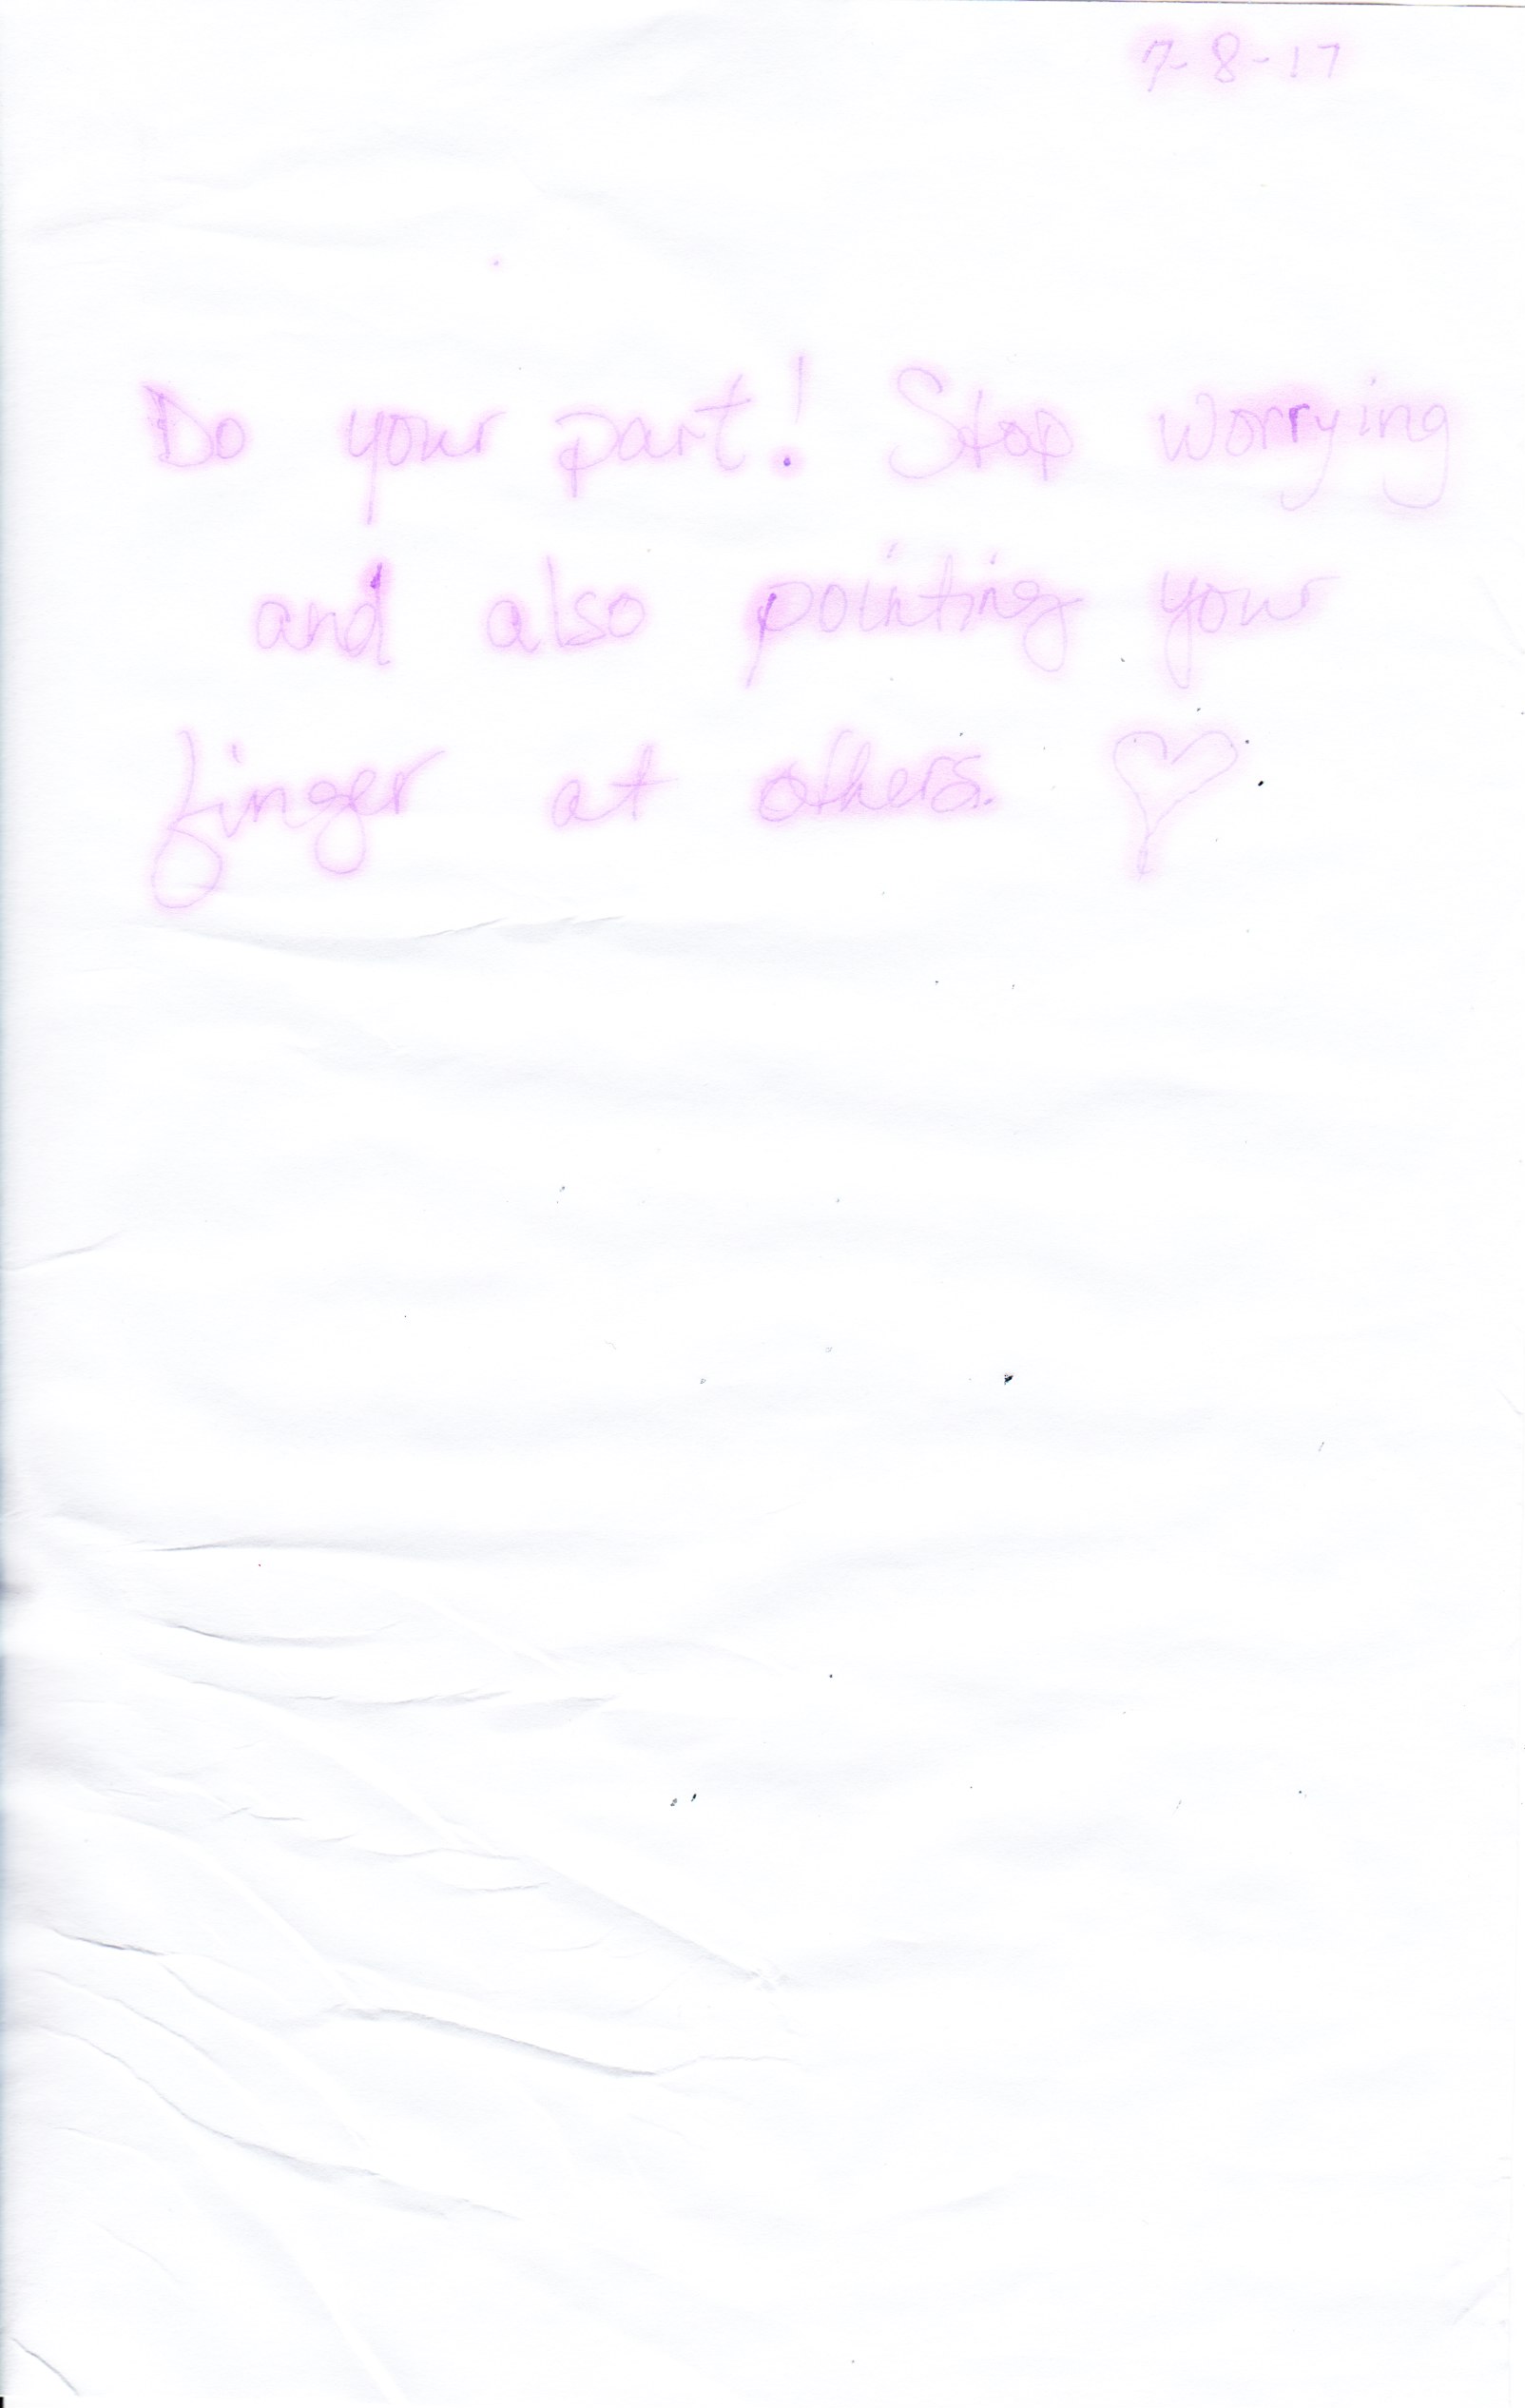 7-8-17
Do your part! Stop worrying
and also pointing your
finger at others. ♡